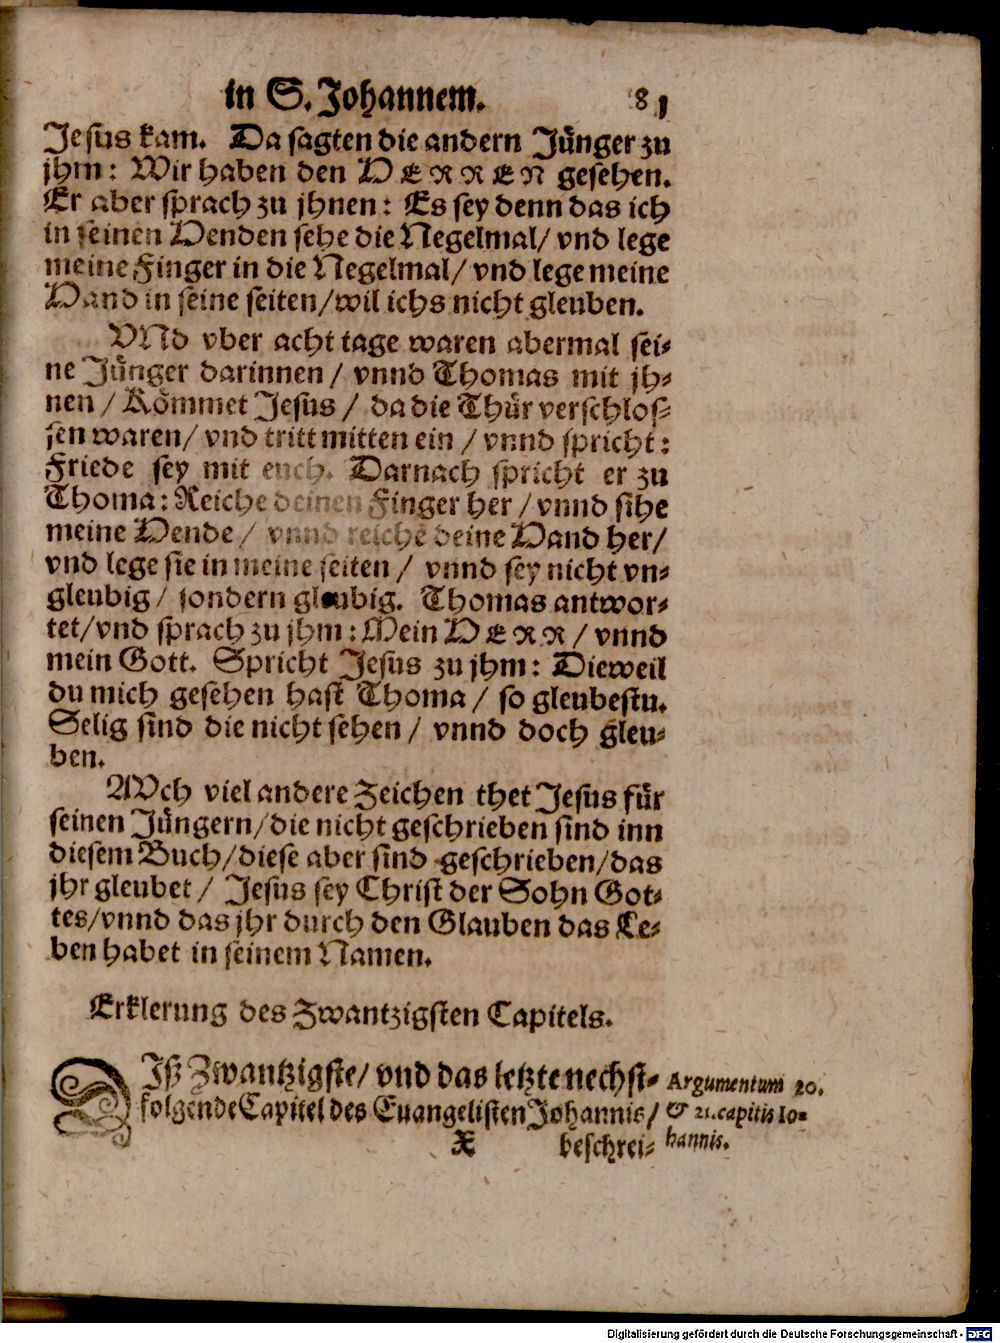 in S. Johannem. 81
Jesus kam. Da sagten die andern Jünger zu
jhm: Wir haben den HERREN gesehen.
Er aber sprach zu jhnen: Es sey denn das ich
in seinen Henden sehe die Negelmal/ vnd lege
meine Finger in die Negelmal/ vnd lege meine
Hand in seine seiten/wil ichs nicht gleuben.
VNd vber acht tage waren abermal sei⸗
ne Jünger darinnen/ vnnd Thomas mit jh⸗
nen/ Kömmet Jesus/ da die Thür verschlos⸗
sen waren/ vnd tritt mitten ein/ vnnd spricht:
Friede sey mit euch. Darnach spricht er zu
Thoma: Reiche deinen Finger her/ vnnd sihe
meine Hende/ vnnd reiche deine Hand her/
vnd lege sie in meine seiten/ vnnd sey nicht vn⸗
gleubig/ sondern gleubig. Thomas antwor⸗
tet/vnd sprach zu jhm: Mein HERR/ vnnd
mein Gott. Spricht Jesus zu jhm: Dieweil
du mich gesehen hast Thoma/ so gleubestu.
Selig sind die nicht sehen/ vnnd doch gleu⸗
ben.
AVch viel andere Zeichen thet Jesus für
seinen Jüngern/die nicht geschrieben sind inn
diesem Buch/diese aber sind geschrieben/das
jhr gleubet/ Jesus sey Christ der Sohn Got⸗
tes/vnnd das jhr durch den Glauben das Le⸗
ben habet in seinem Namen.
Erklerung des Zwantzigsten Capitels.
DIß Zwantzigste/ vnd das letzte nechst⸗
folgende Capitel des Euangelisten Johannis/
Argumentum 20.
& 21. capitis Io⸗
hannis.
X beschrei⸗
Digitalisierung gefördert durch die Deutsche Forschungsgemeinschaft - DFG